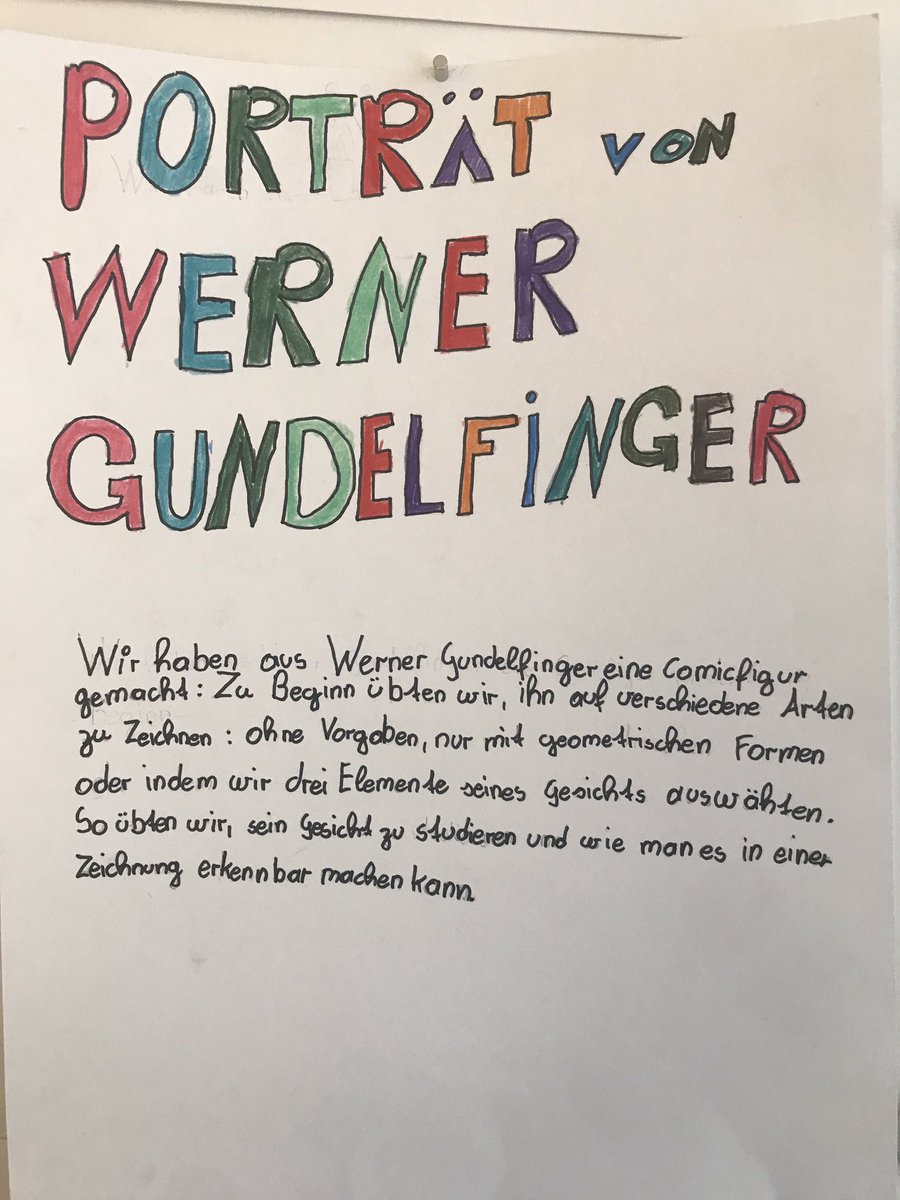 PORTRÄT VON
WERNER
GUNDELFiNGER
Wir haben aus Werner Gundelfinger eine Comicfigur
gemacht: Zu Beginn übten wir, ihn auf verschiedene Arten
zu Zeichnen: ohne Vorgaben, nur mit geometrischen Formen
oder indem wir drei Elemente seines Gesichts auswählten.
So übten wir, sein Gesicht zu studieren und wie man es in einer
Zeichnung erkennbar machen kann.